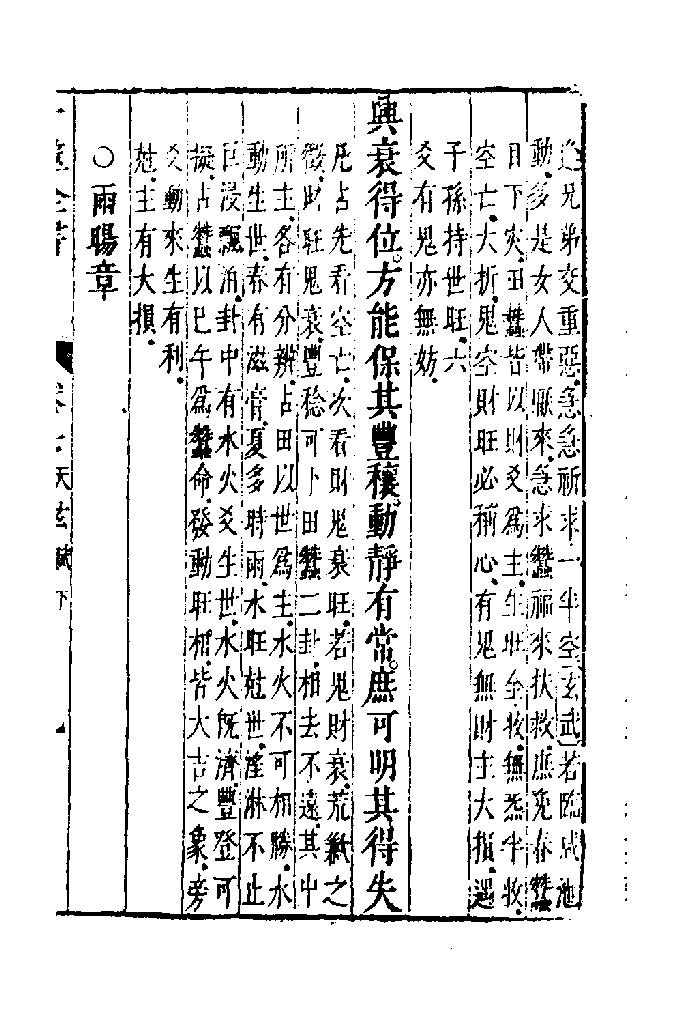 逢兄弟交重惡急急祈求一半空玄武若臨咸池
動多是女人帶厭來急求蠶福來扶救庶免春蠶
目下灾田蠶皆以財爻爲主生旺全收無炁半收
空亡大折鬼空財旺必稱心有鬼無財主大損遇
子孫持世旺六
爻有鬼亦無妨
興衰得位方能保其豐穰動靜有常庶可明其得失
凡占先看空亡次看財鬼衰旺若鬼財衰荒歉之
徵財旺鬼衰豐稔可卜田蠶二卦相去不遠其中
所主各有分辨占田以世爲主水火不可相勝水
動生世春有滋膏夏多時雨水旺尅世淫淋不止
巨浸飄消卦中有水火爻生世水火旣濟豐登可
擬占蠶以巳午爲蠶命發動旺相皆大吉之象旁
爻動來生有利
尅主有大損
○雨暘章
全書
卷七天玄賦下